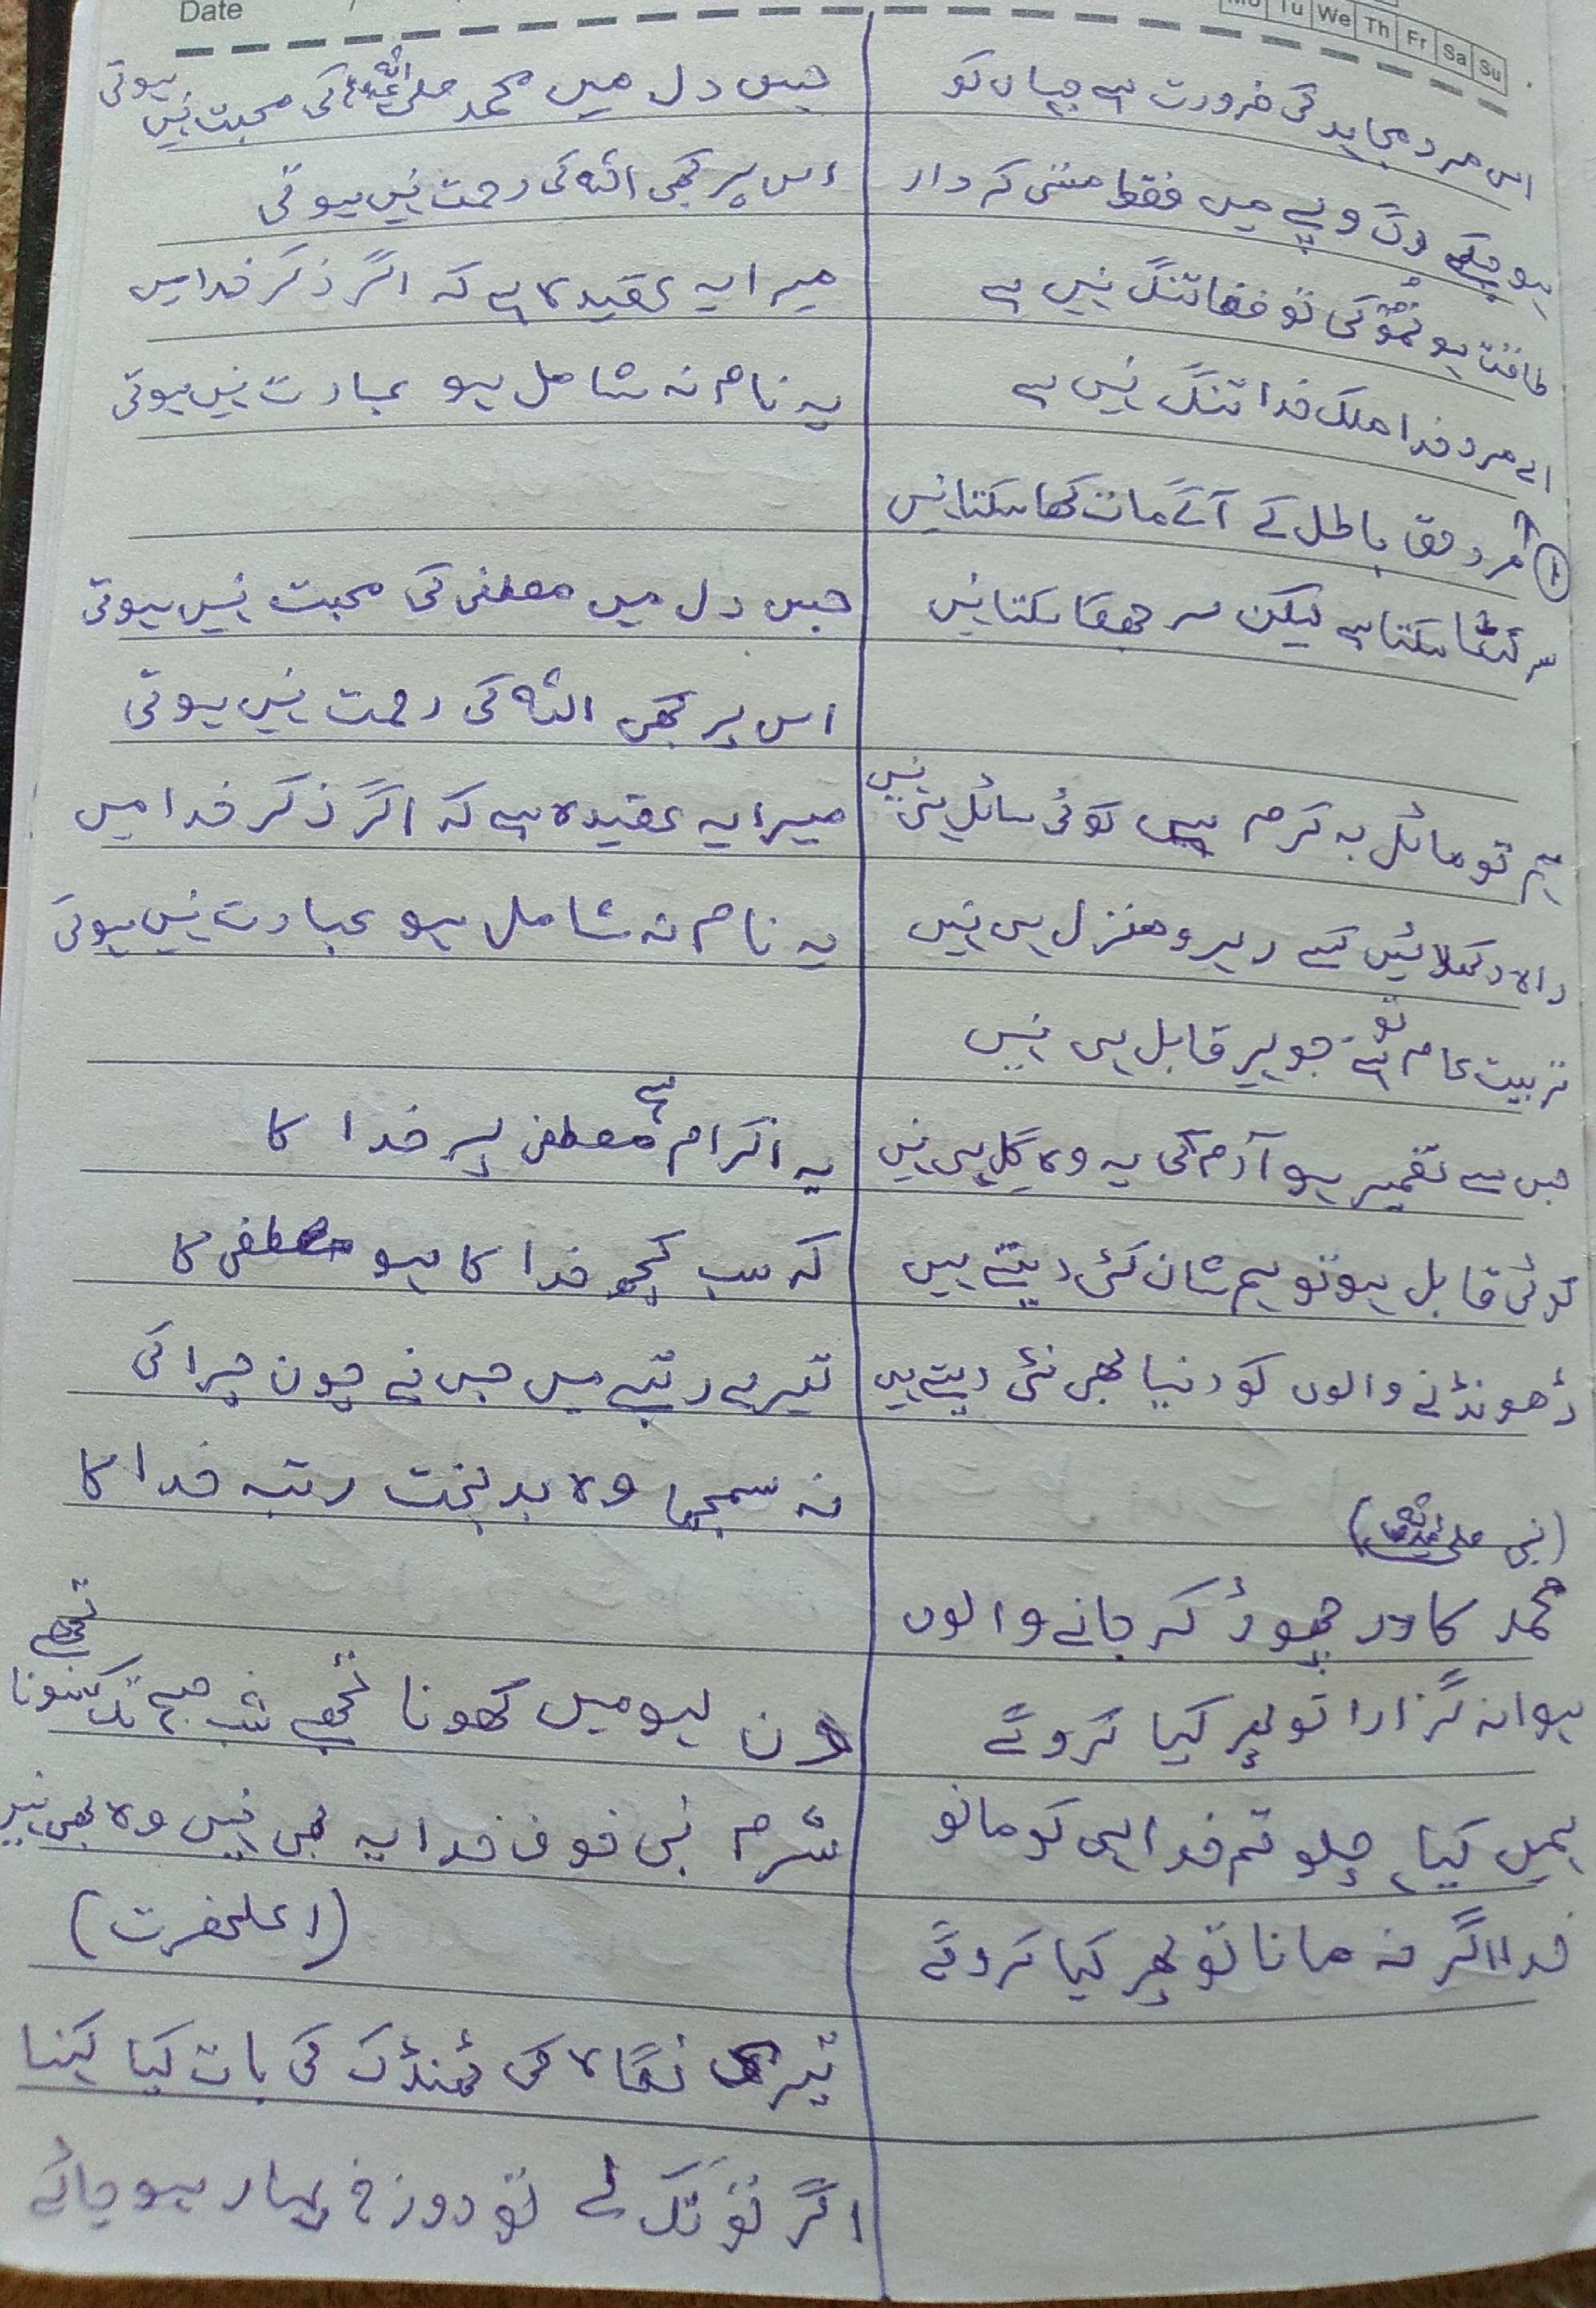 Date
Mo Tu We Th Fr Sa Su
اس مرد مجاہد کی ضرورت ہے جہاں کو
ہو جسکے رگ و پے میں فقط مستی کردار
طاقت ہو نمُو کی تو فضا تنگ نہیں ہے
اے مرد خدا ملک خدا تنگ نہیں ہے
① مرد حق باطل کے آگے مات کھا سکتا نہیں
سر کٹا سکتا ہے لیکن سر جھکا سکتا نہیں
ہم تو مائل بہ کرم ہیں کوئی سائل ہی نہیں
راہ دکھلائیں کسے رہرو منزل ہی نہیں
تربیت عام تو ہے جوہر قابل ہی نہیں
جس سے تعمیر ہو آدم کی یہ وہ گِل ہی نہیں
کوئی قابل ہو تو ہم شان کئی دیتے ہیں
ڈھونڈنے والوں کو دنیا بھی نئی دیتے ہیں
(نبی ﷺ)
محمد کا در چھوڑ کر جانے والوں
ہوا نہ گزارا تو پھر کیا کروگے
ہمیں کیا، چلو تم خدا ہی کو مانو
خدا اگر نہ مانا تو پھر کیا کروگے
جس دل میں محمد ﷺ کی محبت نہیں ہوتی
اس پر کبھی اللہ کی رحمت نہیں ہوتی
میرا یہ عقیدہ ہے کہ اگر ذکر خدا میں
یہ نام نہ شامل ہو عبادت نہیں ہوتی
جس دل میں مصطفی کی محبت نہیں ہوتی
اس پر کبھی اللہ کی رحمت نہیں ہوتی
میرا یہ عقیدہ ہے کہ اگر ذکر خدا میں
یہ نام نہ شامل ہو عبادت نہیں ہوتی
یہ اکرام ہے مصطفی پر خدا کا
کہ سب کچھ خدا کا ہو مصطفی کا
تیرے رتبے میں جس نے چون چرا کی
نہ سمجھا وہ بدبخت رتبہ خدا کا
دن لہو میں کھونا تجھے شب صبح تک سونا تجھے
شرم نبی خوف خدا یہ بھی نہیں وہ بھی نہیں
(اعلحضرت)
تیری نگاہ کی ٹھنڈک کی بات کیا کہنا
اگر تو تک لے تو دوزخ بہار ہو جائے